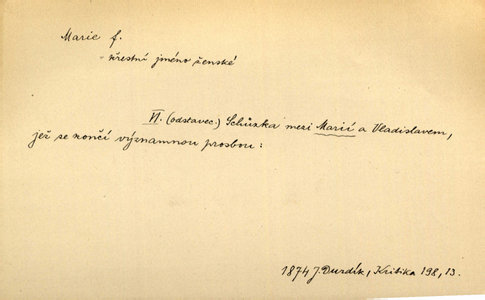 Marie f.
- křestní jméno ženské
VI. (odstavec.) Schůzka mezi Marií a Vladislavem,
jež se končí významnou prosbou:
1874 J. Durdík, Kritika 198, 13.